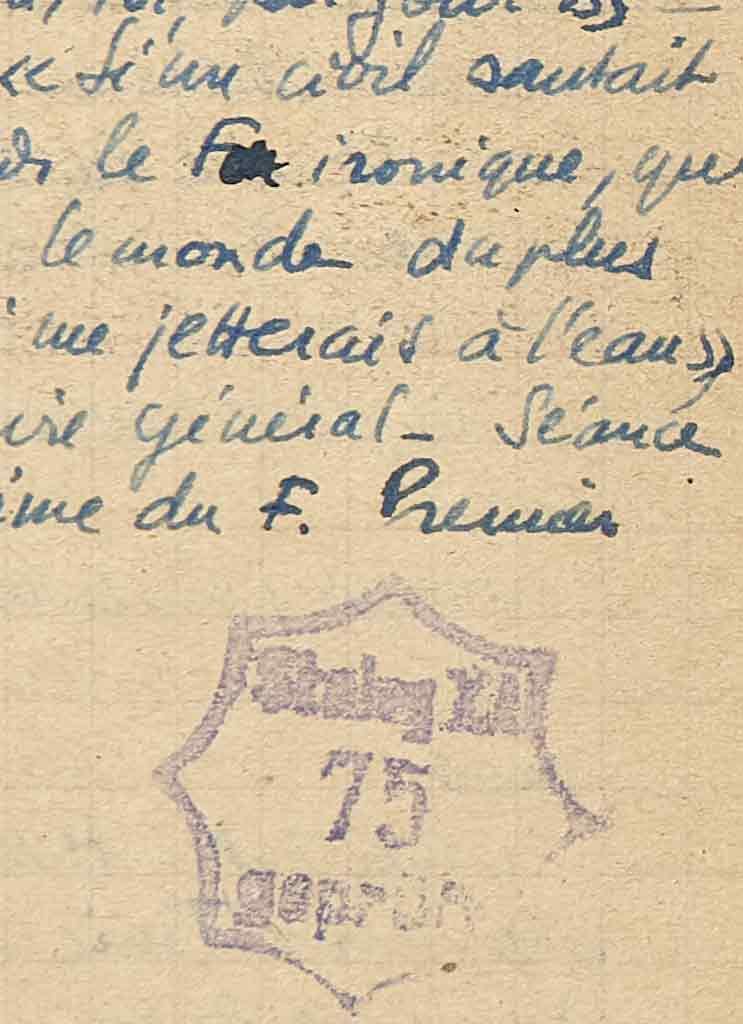 par jour »» —
« Si un civil sautait
le F ironique, que
le monde du plus
me jetterais à l'eau »
général – Séance
du F. Premier
Stalag XA
75
geprüft